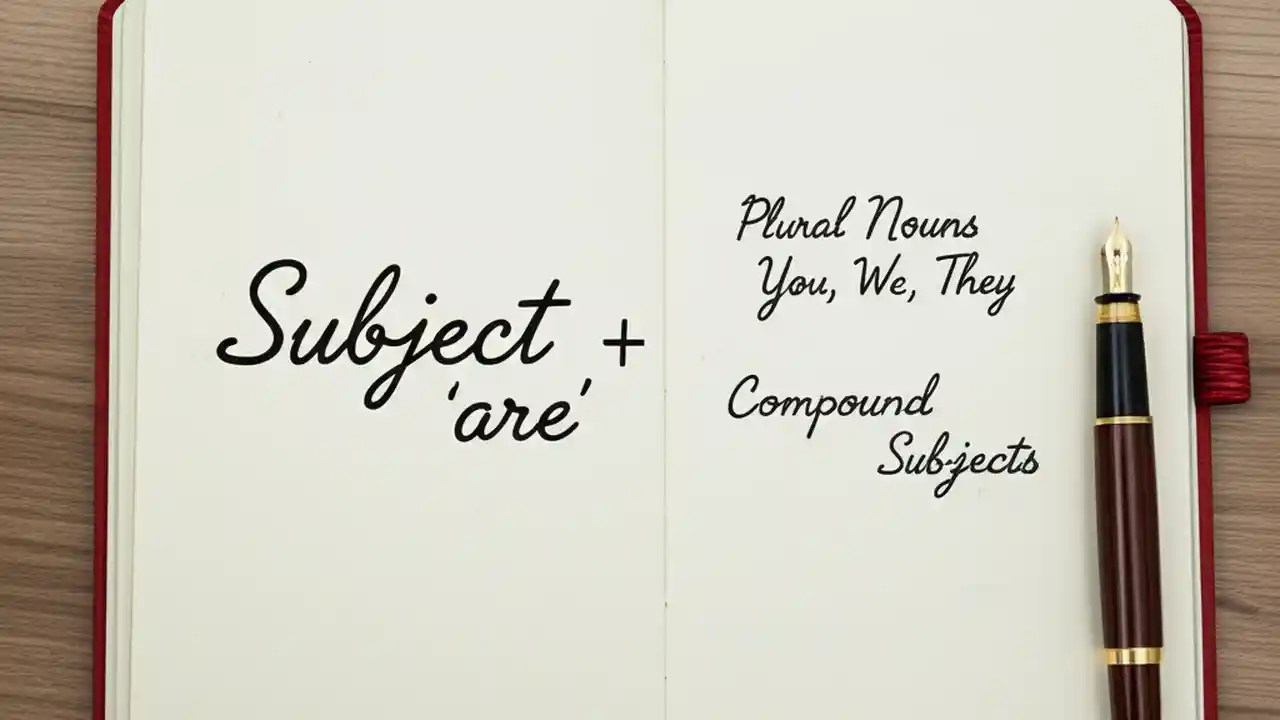 Subject +
'are'
Plural Nouns
You, We, They
Compound
Subjects